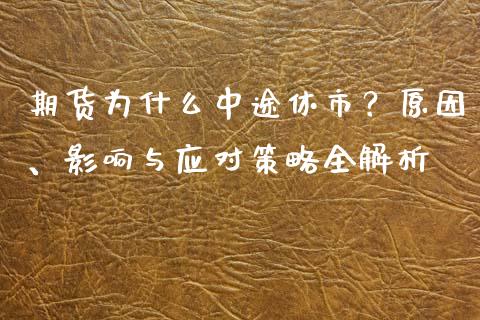 期货为什么中途休市？原因
、影响与应对策略全解析